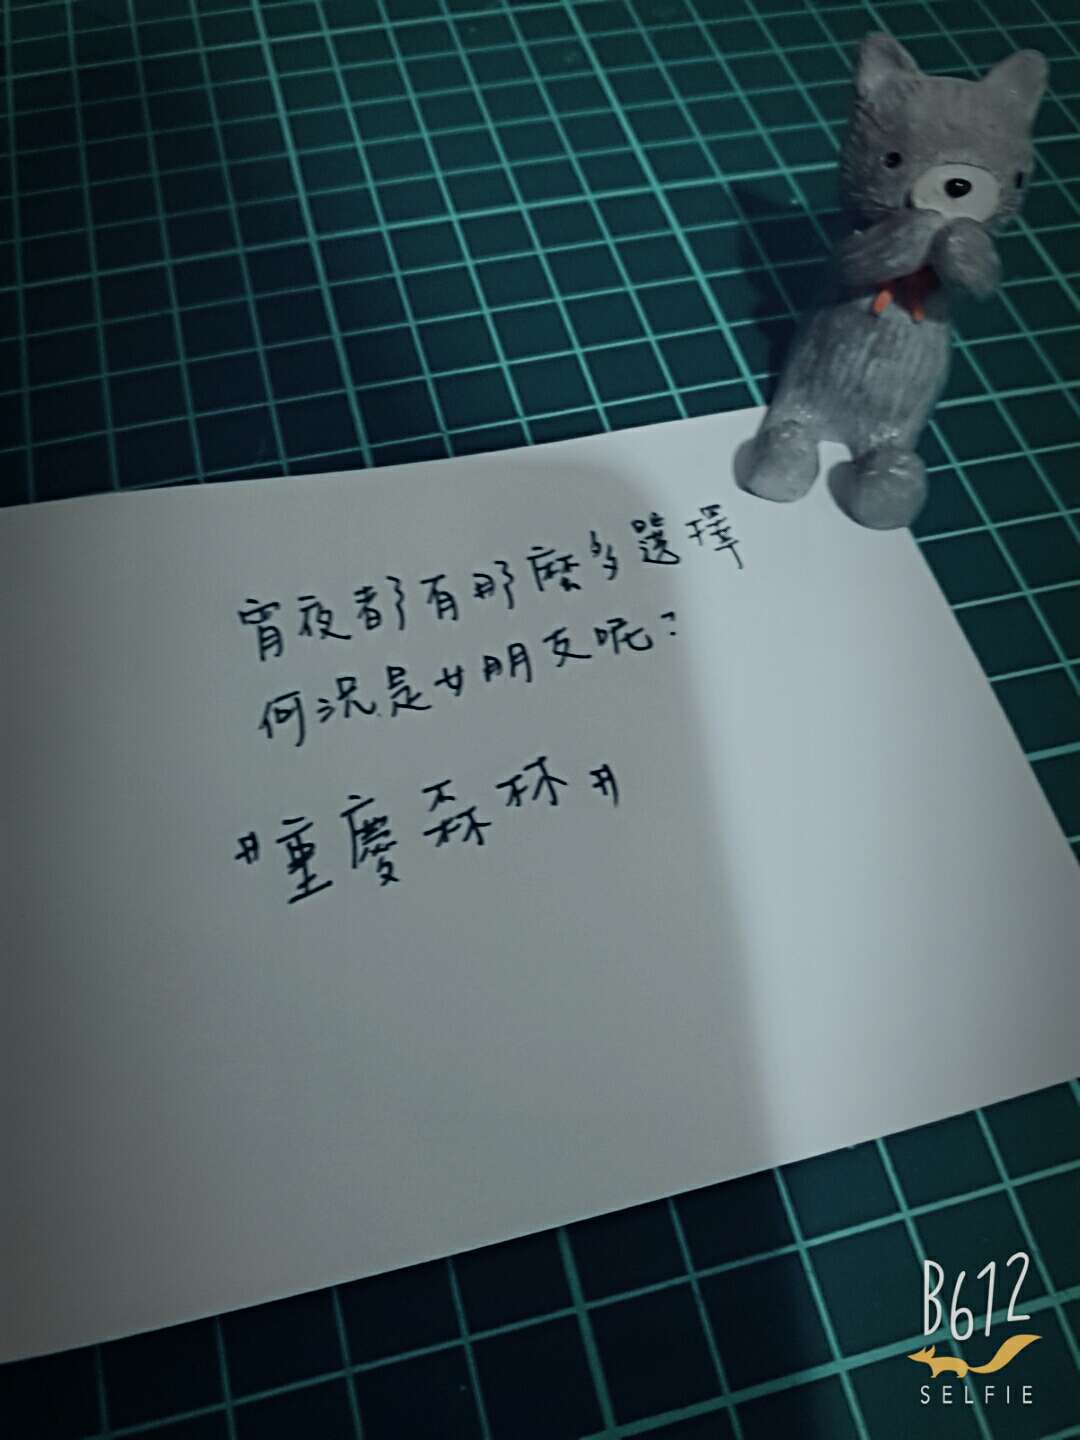 宵夜都有那麼多選擇
何況是女朋友呢?
"重慶森林"
B612
SELFIE